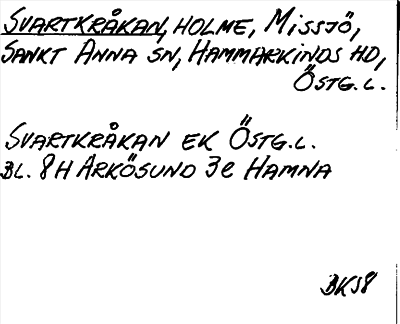 SVARTKRÅKAN, HOLME, MISSJÖ,
SANKT ANNA SN, HAMMARKINDS HD,
ÖSTG. L.
SVARTKRÅKAN EK ÖSTG. L.
BL. 8H ARKÖSUND 3e HAMNA
BKS8